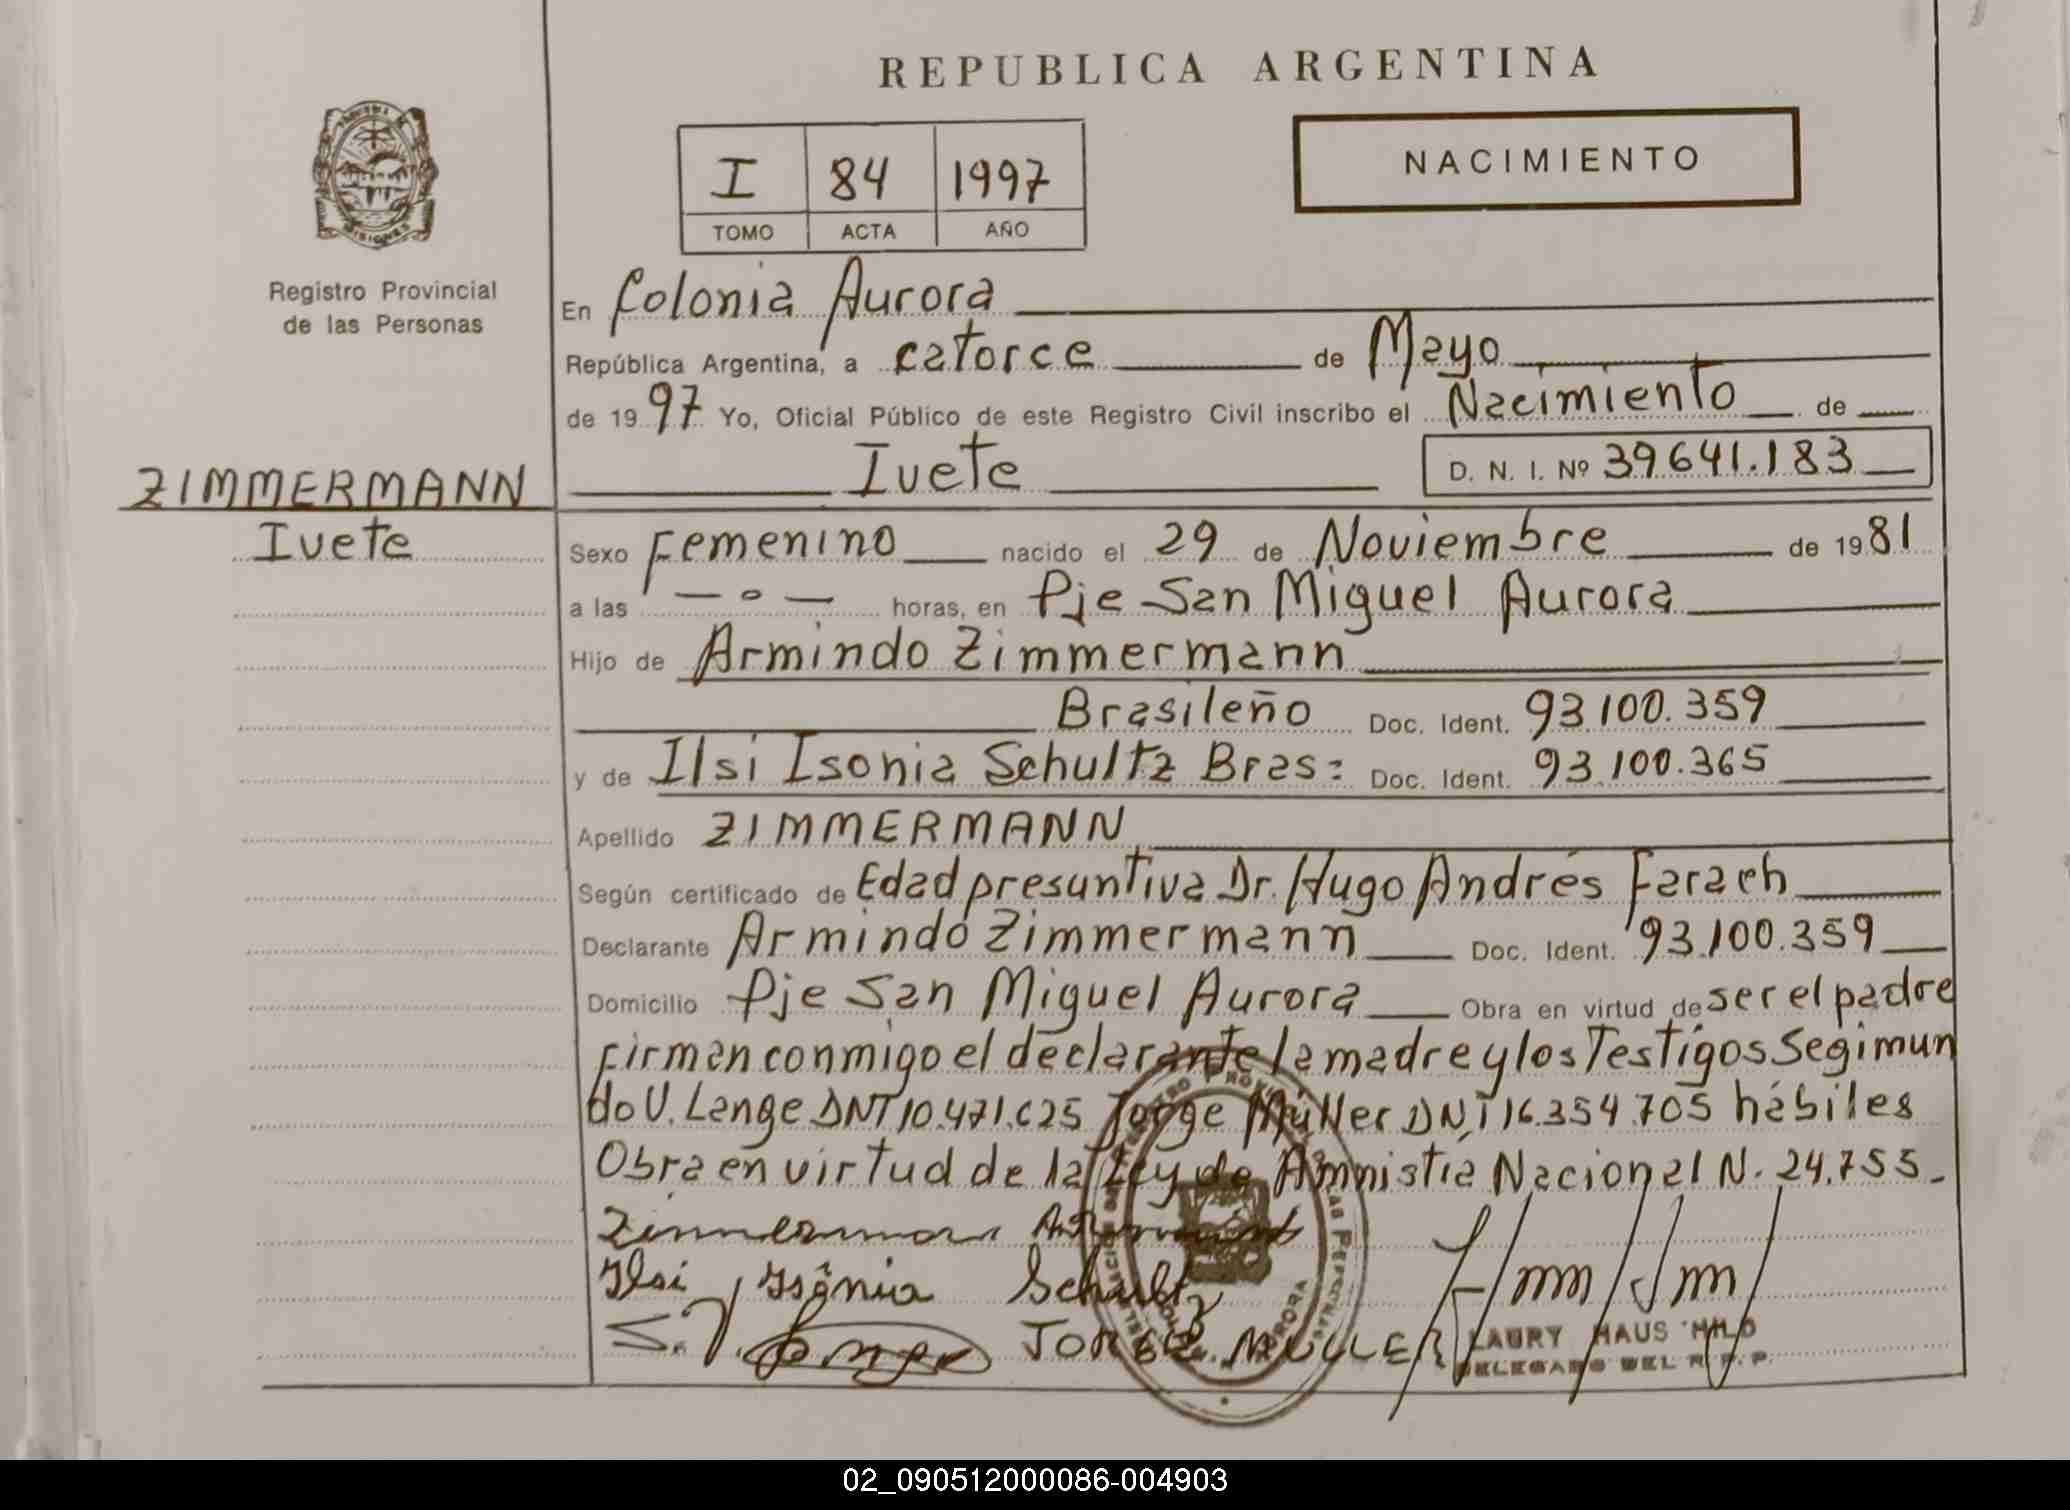 REPUBLICA ARGENTINA
NACIMIENTO
I 84 1997
TOMO ACTA AÑO
MISIONES
Registro Provincial
de las Personas
En Colonia Aurora
República Argentina, a catorce de Mayo
de 1997 Yo, Oficial Público de este Registro Civil inscribo el Nacimiento de
Ivete D. N. I. Nº 39.641.183
ZIMMERMANN
Ivete
Sexo Femenino nacido el 29 de Noviembre de 1981
a las — o — horas, en Pje San Miguel Aurora
Hijo de Armindo Zimmermann
Brasileño Doc. Ident. 93.100.359
y de Ilsi Isonia Schultz Bras= Doc. Ident. 93.100.365
Apellido ZIMMERMANN
Según certificado de Edad presuntiva Dr. Hugo Andrés Farach
Declarante Armindo Zimmermann Doc. Ident. 93.100.359
Domicilio Pje San Miguel Aurora Obra en virtud de ser el padre
Firman conmigo el declarante la madre y los Testigos Segimun
do V. Lange DNI 10.471.625 Jorge Müller DNI 16.354.705 hábiles
Obra en virtud de la Ley de Amnistia Nacional N. 24.755.
Zimmermann
Ilsi Isônia Schultz
S. V. Lange JORGE MULLER
LAURY HAUS
DELEGADO DEL R. P. P.
02_090512000086-004903